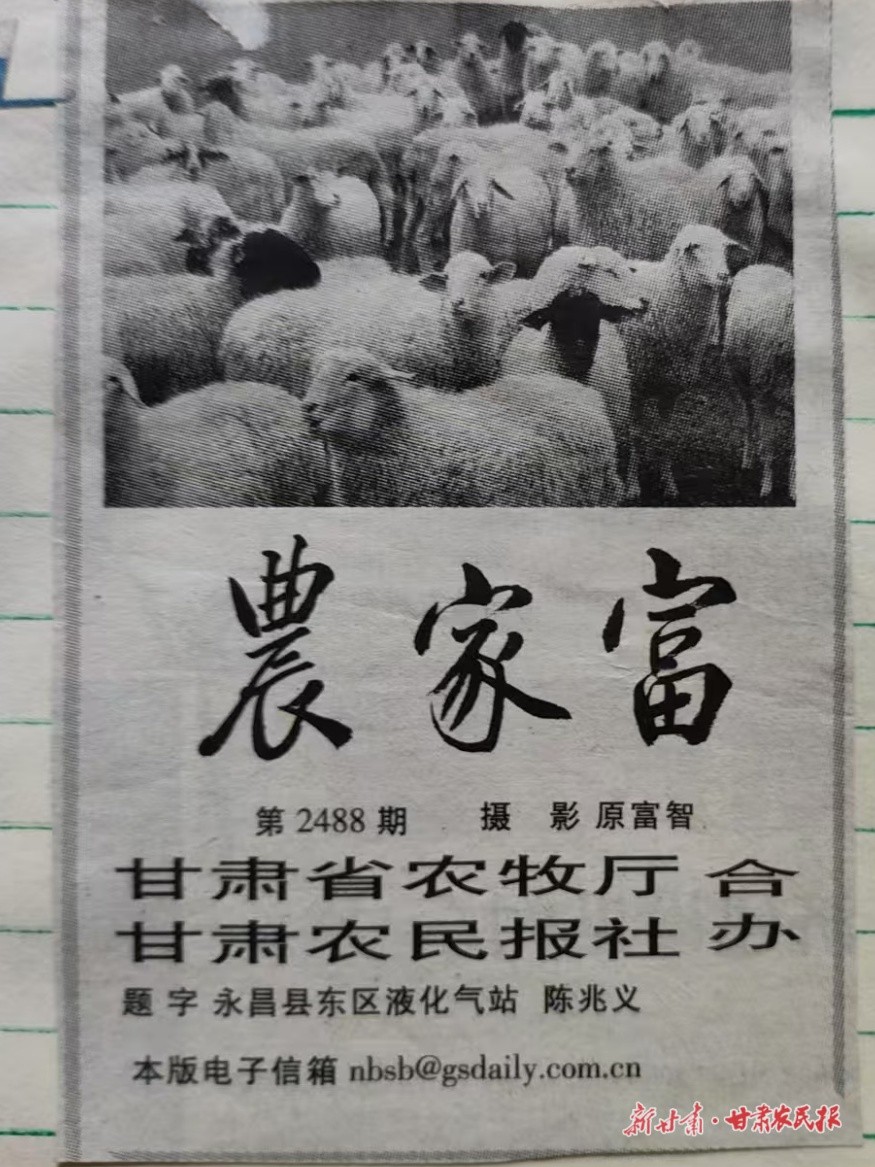 農家富
第2488期 摄 影 原富智
甘肃省农牧厅 合
甘肃农民报社 办
题 字 永昌县东区液化气站 陈兆义
本版电子信箱 nbsb@gsdaily.com.cn
新甘肃·甘肃农民报